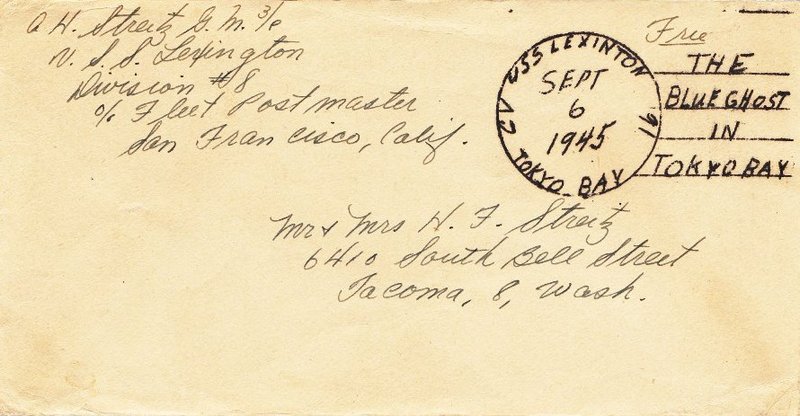 A H. Streitz G.M. 3/c
U. S. S. Lexington
Division #8
c/o Fleet Postmaster
San Francisco, Calif.
Free
USS LEXINTON
CV 16
SEPT
6
1945
TOKYO BAY
THE
BLUE GHOST
IN
TOKYO BAY
Mr & Mrs H. F. Streitz
6410 South Bell Street
Tacoma, 8, Wash.